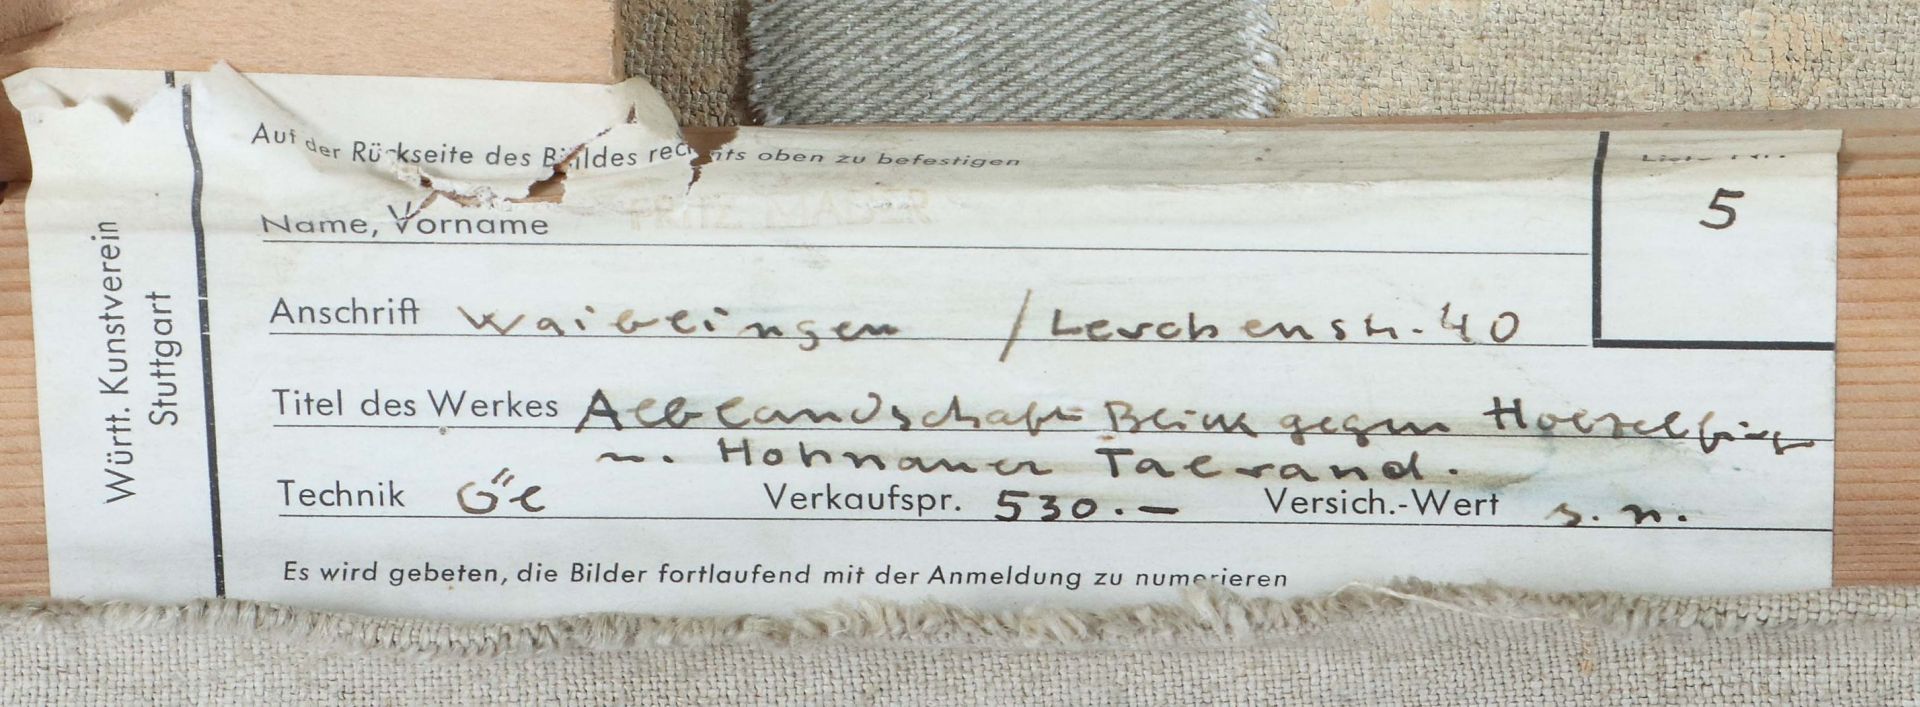 Württ. Kunstverein
Stuttgart
Auf der Rückseite des Bildes rechts oben zu befestigen
Liste Nr.
5
Name, Vorname FRITZ MAUER
Anschrift Waiblingen / Lerchenstr. 40
Titel des Werkes Alblandschaft Blick gegen
u. Talrand.
Technik Öl Verkaufspr. 530.— Versich.-Wert s. n.
Es wird gebeten, die Bilder fortlaufend mit der Anmeldung zu numerieren